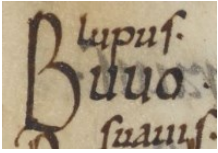 lupus.
Buuo.
suauis.